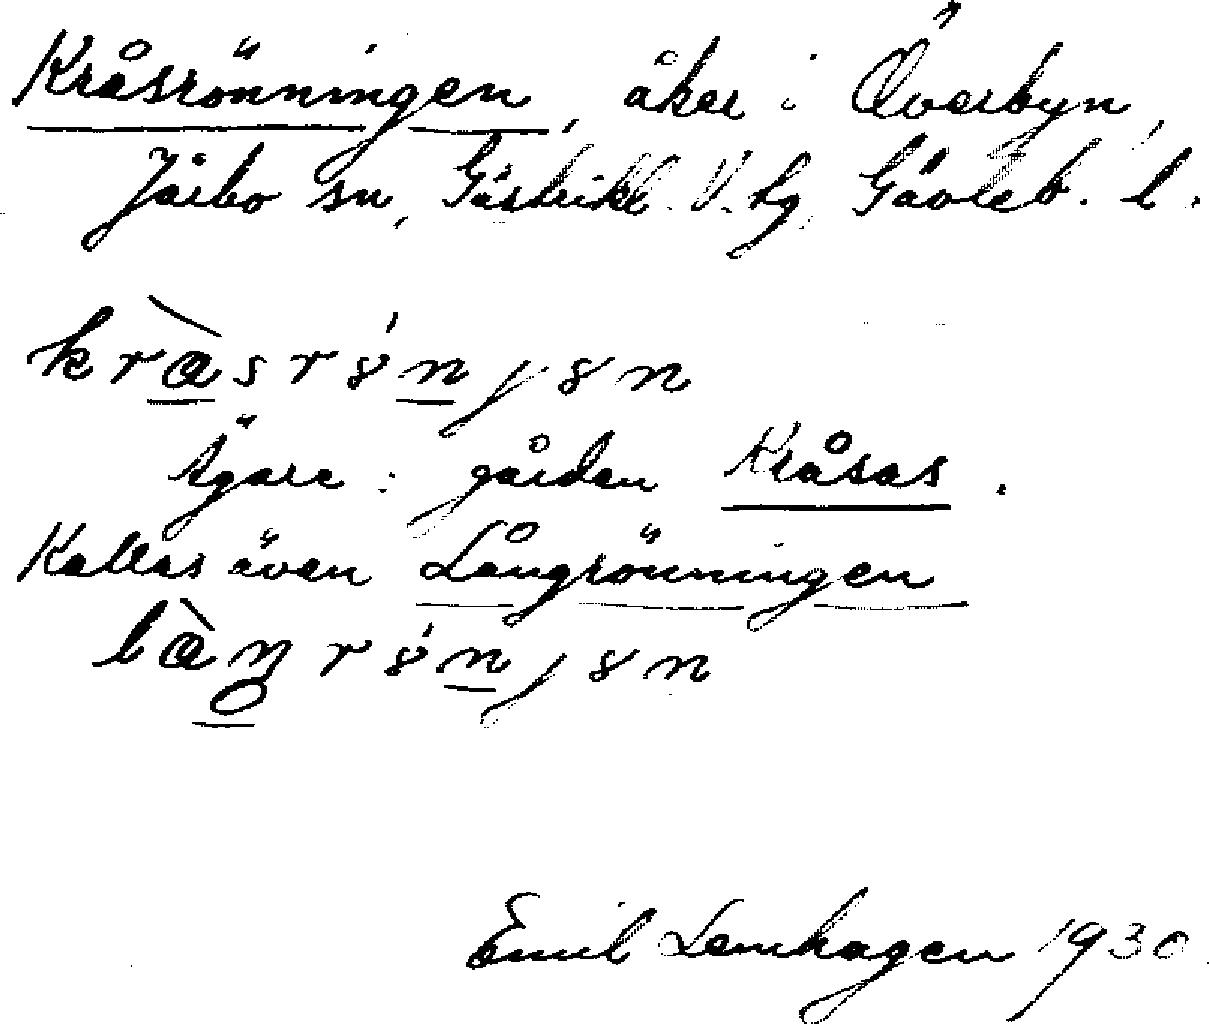 Kråsrönningen, åker i Överbyn,
Järbo sn, Gästrikl. V. tg, Gävleb. l.
kràsrönȷən
Ägare: gården Kråsas.
Kallas även Långrönningen
làŋrönȷən
Emil Lemhagen 1930